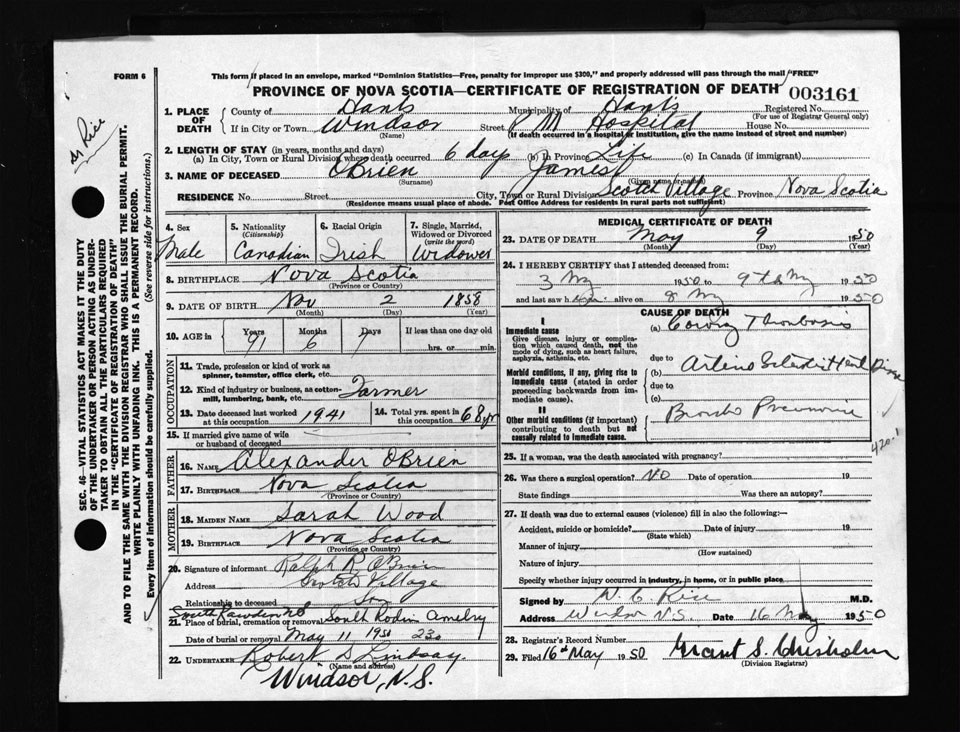 FORM 6
This form if placed in an envelope, marked "Dominion Statistics—Free, penalty for improper use $300," and properly addressed will pass through the mail "FREE"
PROVINCE OF NOVA SCOTIA—CERTIFICATE OF REGISTRATION OF DEATH 003161
1. PLACE OF DEATH County of Hants Municipality of Hants Registered No.
(For use of Registrar General only)
If in City or Town Windsor Street P M Hospital House No.
(Name) (If death occurred in a hospital or institution, give the name instead of street and number)
2. LENGTH OF STAY (in years, months and days)
(a) In City, Town or Rural Division where death occurred 6 days (b) In Province Life (c) In Canada (if immigrant)
3. NAME OF DECEASED OBrien James
(Surname) (Given name or names)
RESIDENCE No. Street City, Town or Rural Division Scotch Village Province Nova Scotia
(Residence means usual place of abode. Post Office Address for residents in rural parts not sufficient)
4. Sex Male
5. Nationality (Citizenship) Canadian
6. Racial Origin Irish
7. Single, Married, Widowed or Divorced (write the word) Widower
8. BIRTHPLACE Nova Scotia
(Province or Country)
9. DATE OF BIRTH Nov 2 1858
(Month) (Day) (Year)
10. AGE in Years Months Days If less than one day old
91 6 7 hrs. or min.
OCCUPATION
11. Trade, profession or kind of work as spinner, teamster, office clerk, etc.
12. Kind of industry or business, as cotton-mill, lumbering, bank, etc. Farmer
13. Date deceased last worked at this occupation 1941
14. Total yrs. spent in this occupation 68 yr
15. If married give name of wife or husband of deceased
FATHER
16. NAME Alexander OBrien
17. BIRTHPLACE Nova Scotia
(Province or Country)
MOTHER
18. MAIDEN NAME Sarah Wood
19. BIRTHPLACE Nova Scotia
(Province or Country)
20. Signature of informant Ralph R. O'Brien
Address Scotch Village
Relationship to deceased Son
South Rawdon NS
21. Place of burial, cremation or removal South Rodin
Date of burial or removal May 11 1950 230
22. UNDERTAKER Robert D Lindsay.
(Name and address)
Windsor, N.S.
MEDICAL CERTIFICATE OF DEATH
23. DATE OF DEATH May 9 1950
(Month) (Day) (Year)
24. I HEREBY CERTIFY that I attended deceased from:
3 My 1950 to 9th My 1950
and last saw h im alive on 8 My 1950
CAUSE OF DEATH
I
Immediate cause
Give disease, injury or complication which caused death, not the mode of dying, such as heart failure, asphyxia, asthenia, etc.
(a)
Thrombosis
due to
Morbid conditions, if any, giving rise to immediate cause (stated in order proceeding backwards from immediate cause).
(b)
Heart Disease
due to
(c)
II
Other morbid conditions (if important) contributing to death but not causally related to immediate cause.
Broncho Pneumonia
420-1
25. If a woman, was the death associated with pregnancy?
26. Was there a surgical operation? NO Date of operation 19
State findings Was there an autopsy?
27. If death was due to external causes (violence) fill in also the following:—
Accident, suicide or homicide? Date of injury 19
(State which)
Manner of injury
(How sustained)
Nature of injury
Specify whether injury occurred in industry, in home, or in public place
Signed by Rice M.D.
Address Windsor N.S. Date 16 May 1950
28. Registrar's Record Number
29. Filed 16th May 1950 Grant S. Chisholm
(Division Registrar)
Dr Rice
SEC. 46—VITAL STATISTICS ACT MAKES IT THE DUTY
OF THE UNDERTAKER OR PERSON ACTING AS UNDER-
TAKER TO OBTAIN ALL THE PARTICULARS REQUIRED
IN THE "CERTIFICATE OF REGISTRATION OF DEATH"
AND TO FILE THE SAME WITH THE DIVISION REGISTRAR WHO SHALL ISSUE THE BURIAL PERMIT.
WRITE PLAINLY WITH UNFADING INK. THIS IS A PERMANENT RECORD.
Every item of information should be carefully supplied. (See reverse side for instructions.)